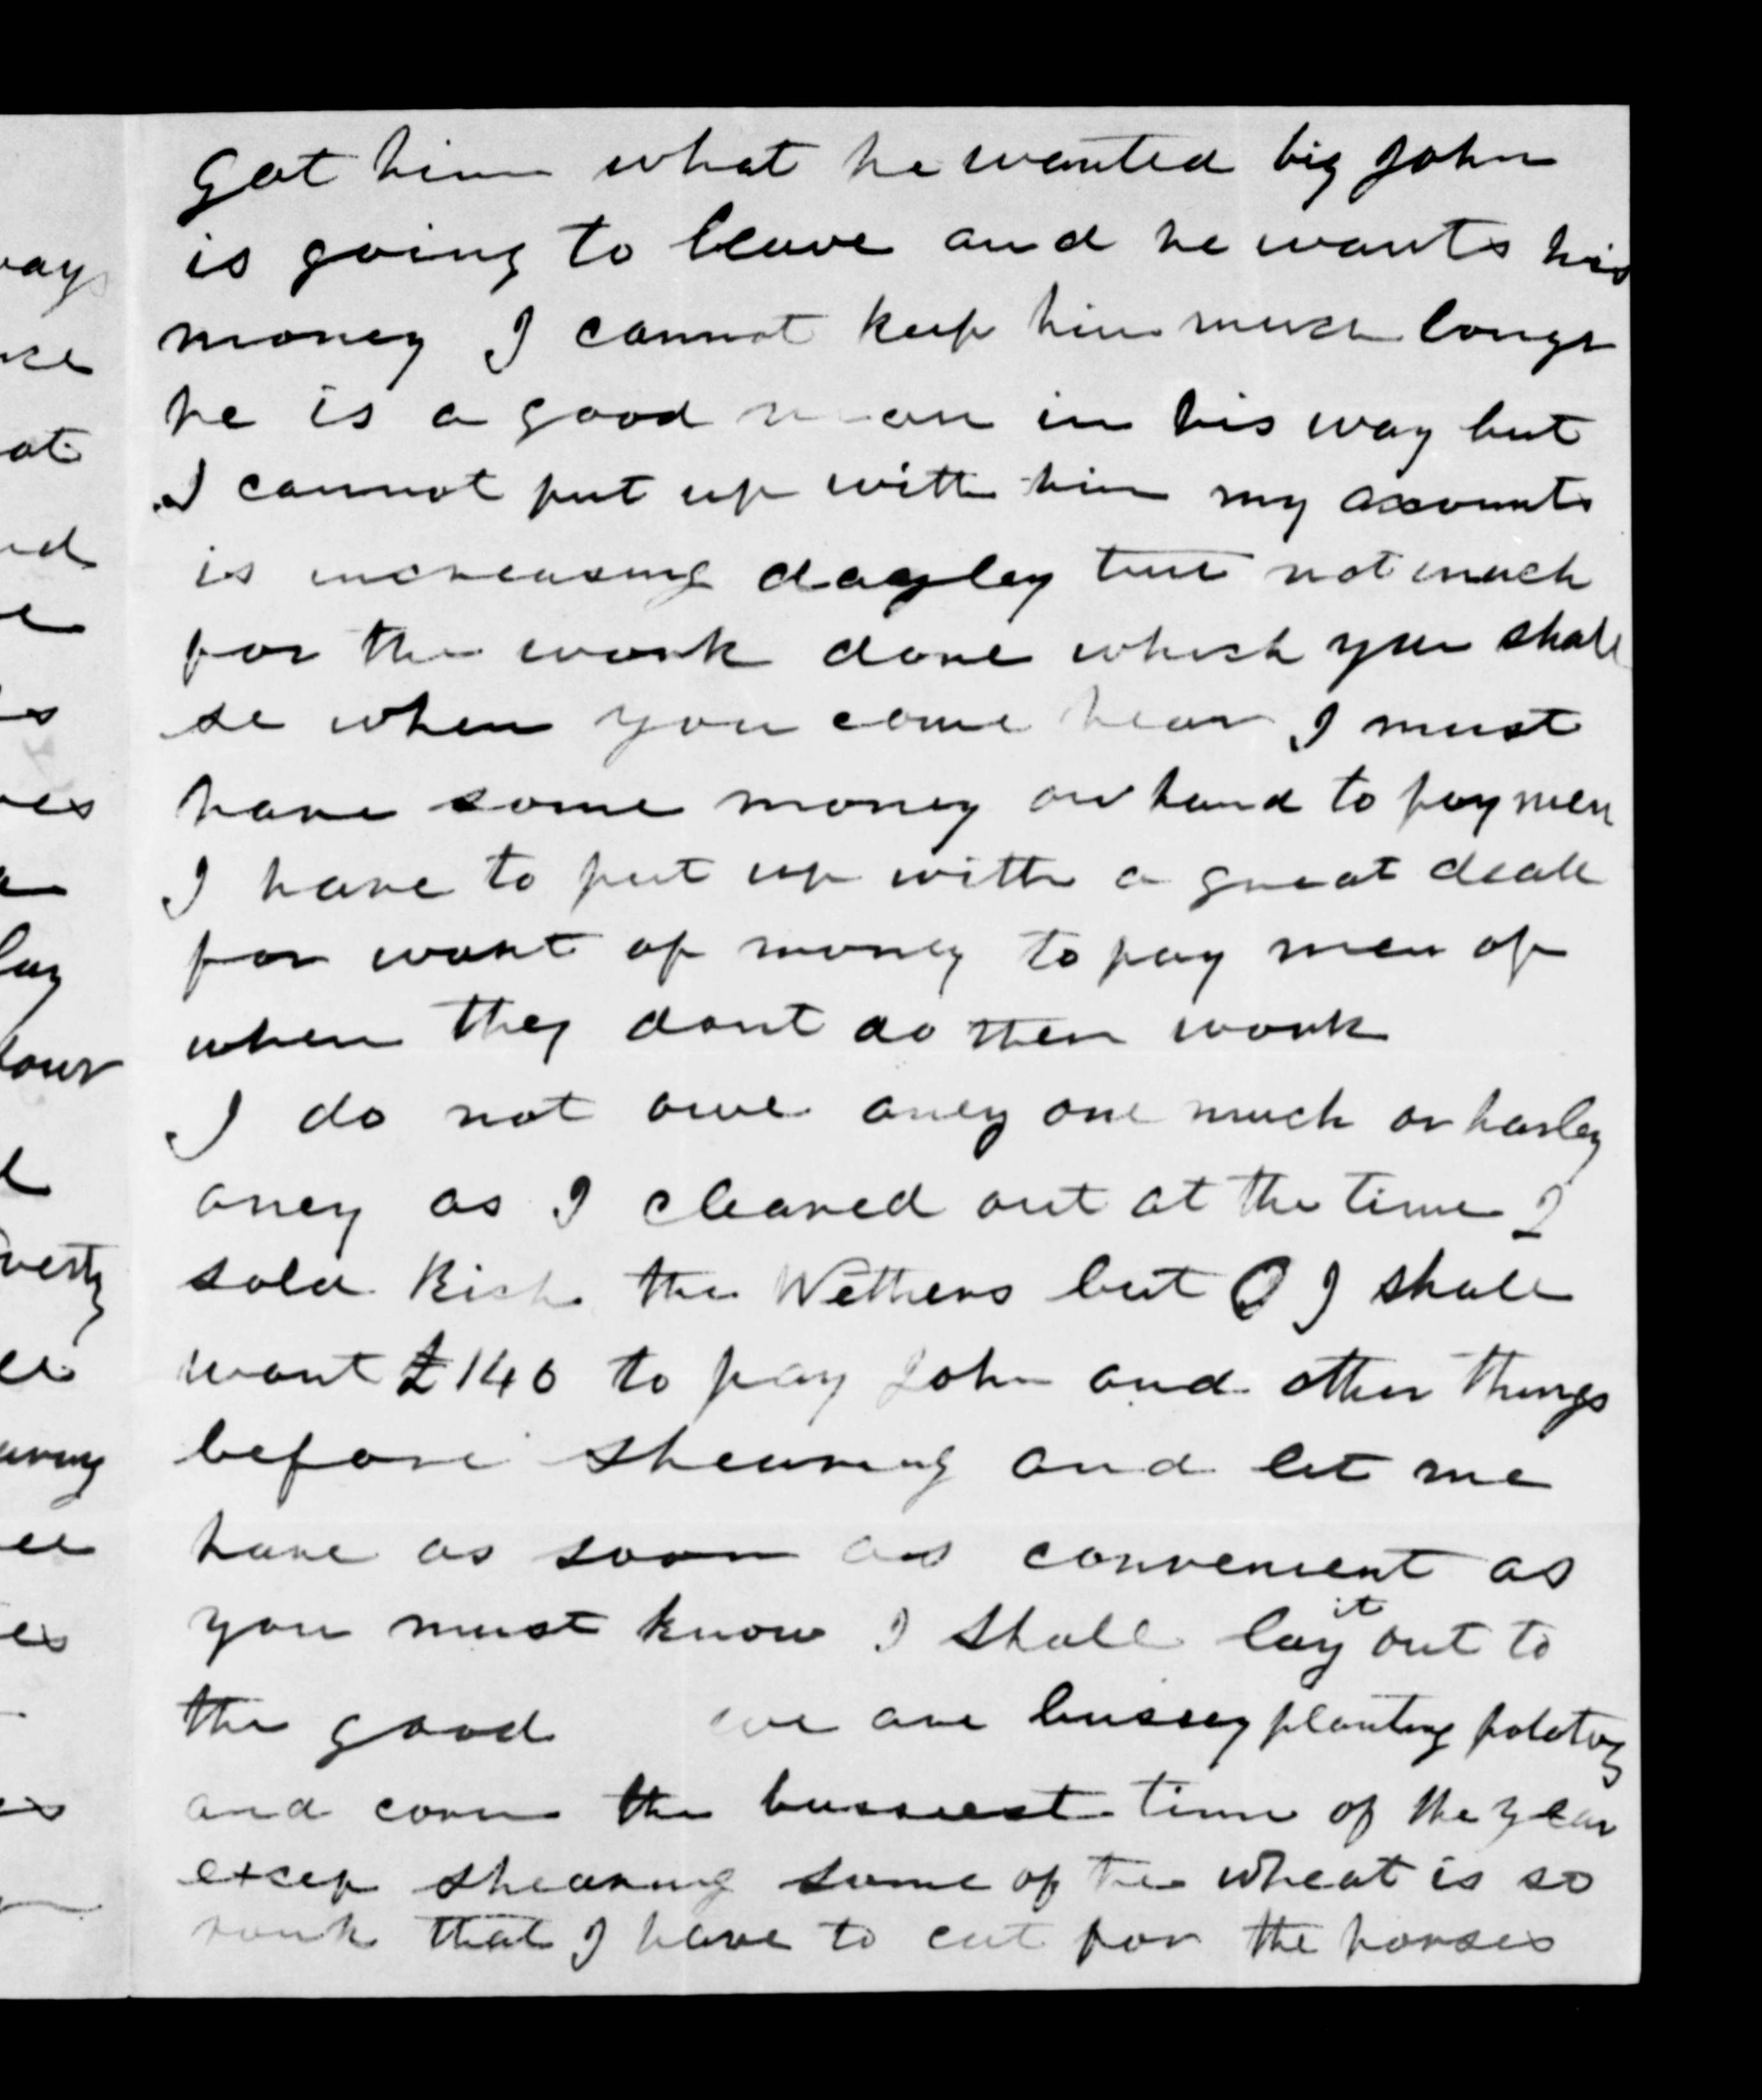 got him what he wanted big John
is going to leave and he wants his
money I cannot keep him much longr
he is a good man in his way but
I cannot put up with him my accounts
is increasing dayley but not much
for the work done which you shall
se when you come hear I must
have some money on hand to pay men
I have to put up with a great deall
for want of money to pay men of
when they dont do ther work
I do not owe aney one much or harley
aney as I cleared out at the time I
sold Rich the Wethers but O I shall
want £140 to pay John and other things
before shearing and let me
have as soon as convenient as
you must know I shall lay it out to
the good we are bussey planting potatoes
and corn the bussiest time of the year
excep shearing some of the wheat is so
rank that I have to cut for the horses